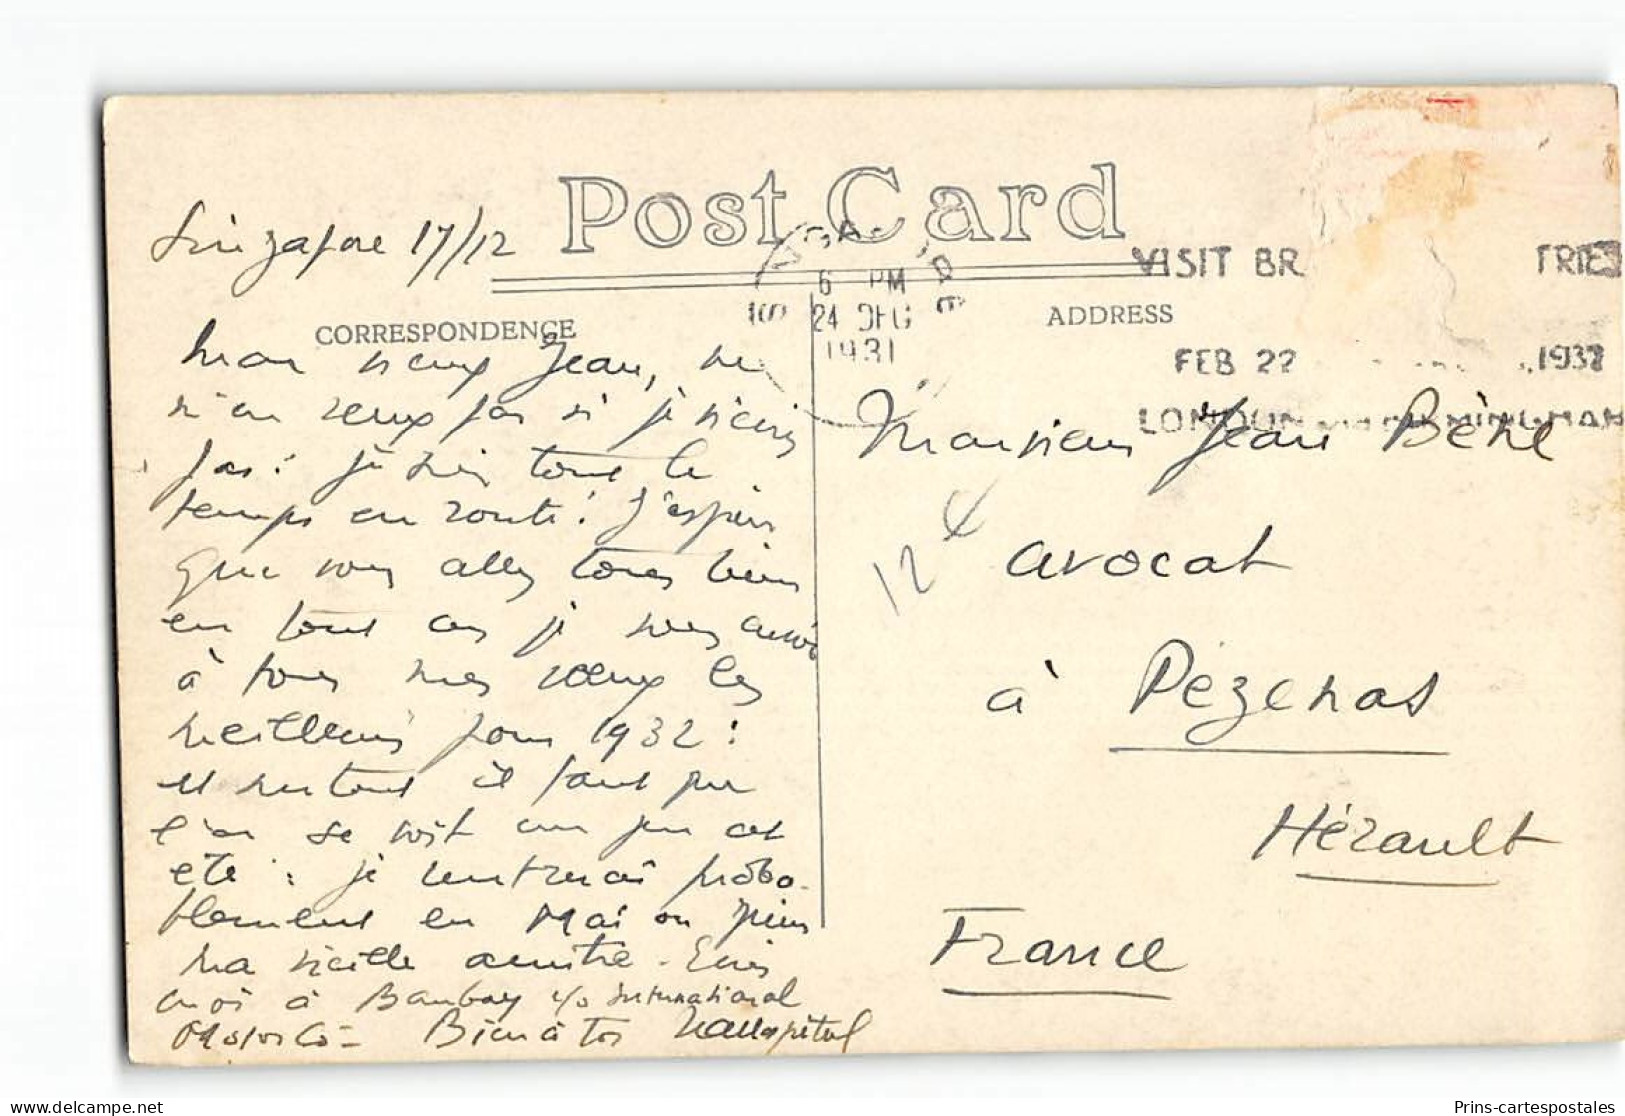 Post Card
Singapore 17/12
CORRESPONDENCE
ADDRESS
6 PM
24 DEC
1931
VISIT BR TRIES
FEB 22 1932
LONDON
Mon vieux Jean, ne
m'en veux pas si je n'écris
pas : je suis tout le
temps en route ! J'espère
que vous allez tous bien
en tout cas je vous envoie
à tous mes voeux les
meilleurs pour 1932 :
et surtout il faut que
l'on se voit un peu cet
été : je rentrerai proba-
blement en Mai ou Juin
Ma vieille amitié - Ecris
moi à Bombay c/o International
Motors Co - Bien à toi
Monsieur Jean Bène
avocat
12
à Pézenas
Hérault
France
Prins-cartespostales
www.delcampe.net